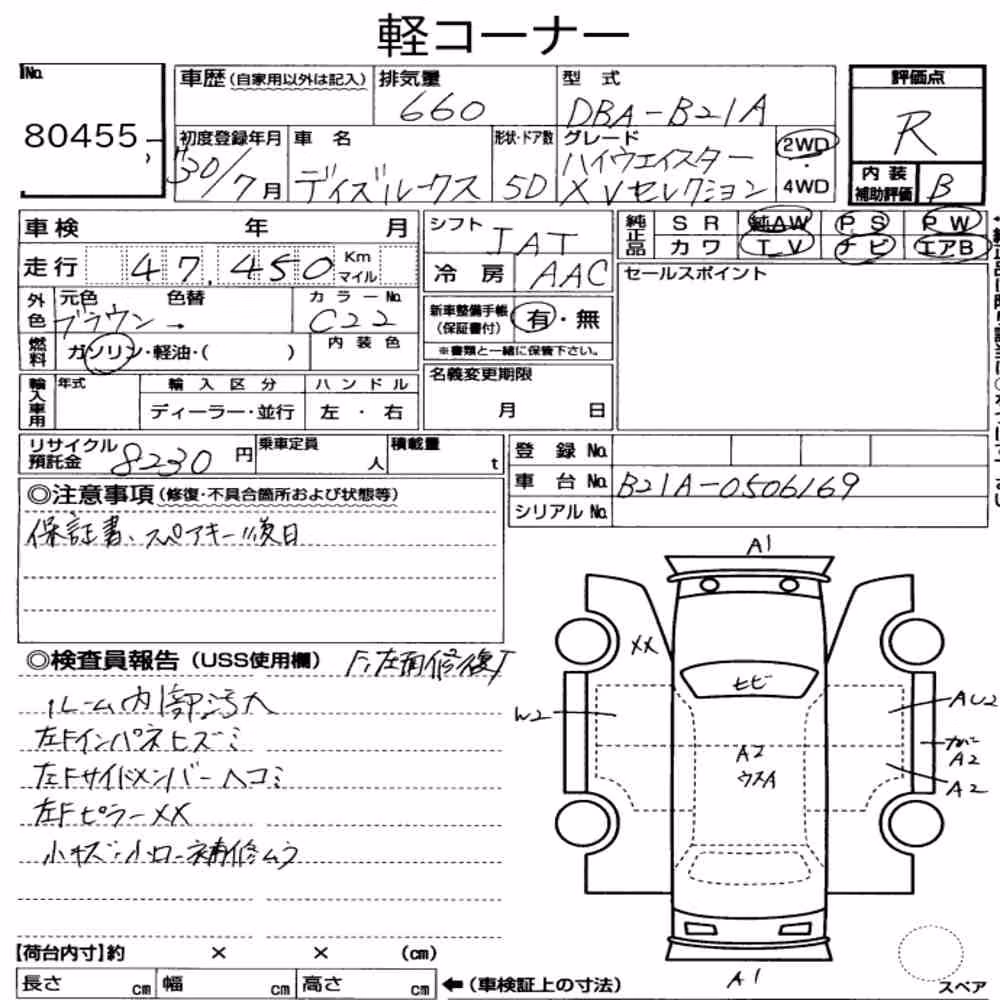 軽コーナー
No.
80455
車歴(自家用以外は記入)
排気量
660
型式
DBA-B21A
評価点
R
初度登録年月
30/7月
車名
デイズルークス
形状・ドア数
5D
グレード
ハイウェイスター
X Vセレクション
2WD
・
4WD
内装
補助評価
B
車検 年 月
シフト
IAT
純正品
SR 純AW PS PW
カワ TV ナビ エアB
走行 47,450 Km
マイル
冷房 AAC
セールスポイント
外色
元色 色替
ブラウン→
カラーNo.
C22
新車整備手帳
(保証書付)
有・無
※書類と一緒に保管下さい。
燃料
ガソリン・軽油・( )
内装色
輸入車用
年式
輸入区分
ディーラー・並行
ハンドル
左・右
名義変更期限
月 日
リサイクル
預託金 8230円
乗車定員
人
積載量
t
登録No.
車台No. B21A-0506169
シリアルNo.
◎注意事項(修復・不具合箇所および状態等)
保証書、スペアキー後日
◎検査員報告(USS使用欄)
ルーム内部汚大
左Fインパネヒズミ
左Fサイドメンバーヘコミ
左FピラーXX
小キズ・小ロー補修ムラ
A1
XX
ヒビ
W2
AU2
A2
ウスA
カバー
A2
A2
A1
スペア
【荷台内寸】約 × × (cm)
長さ cm 幅 cm 高さ cm ←(車検証上の寸法)